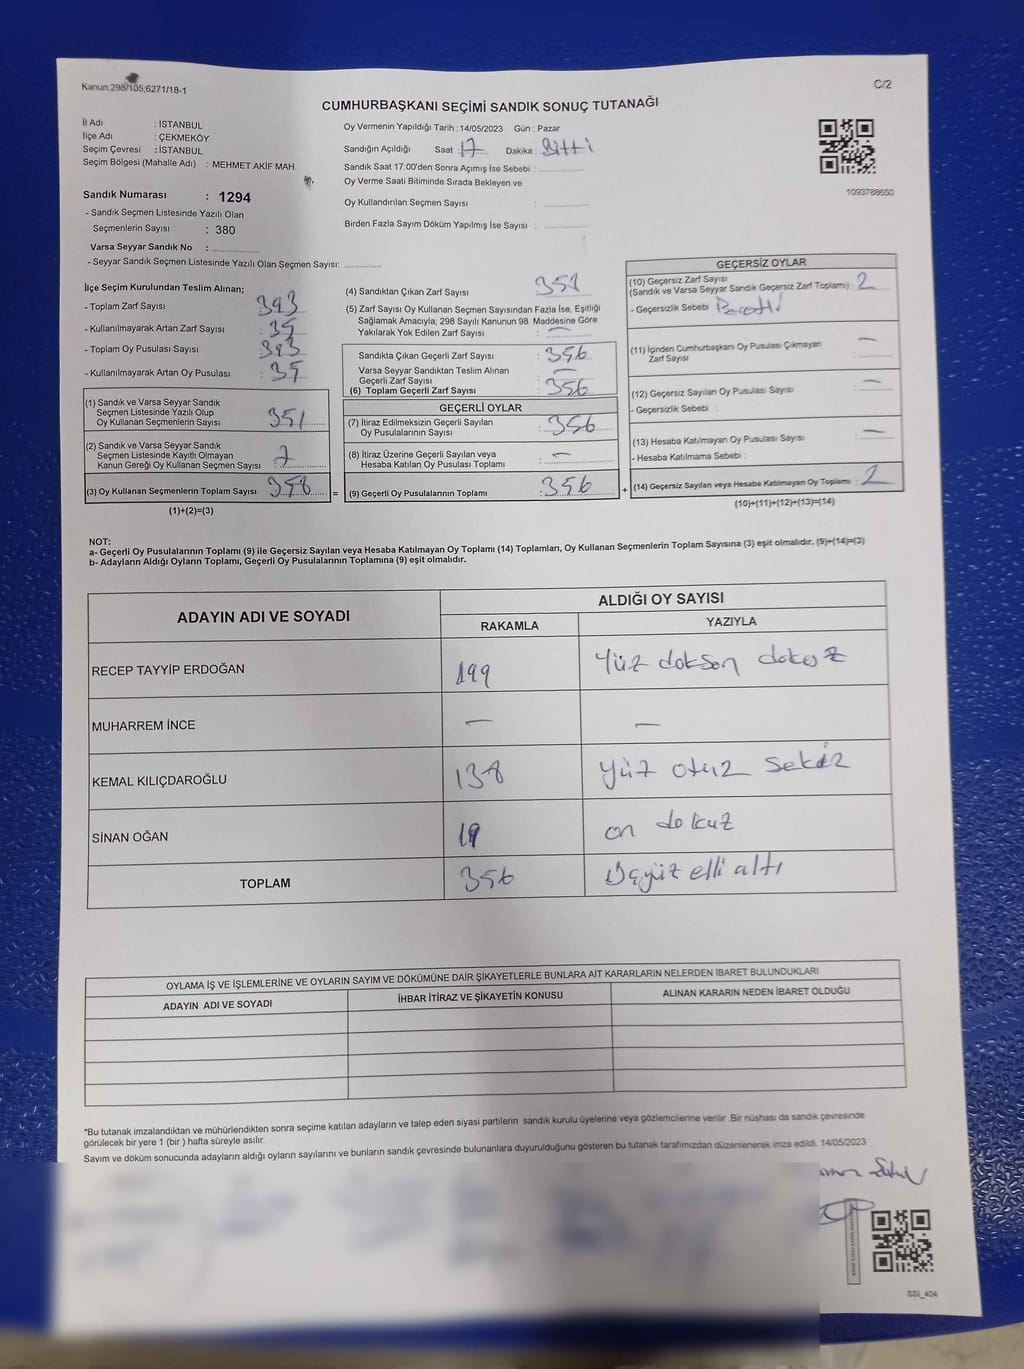 Kanun;298/105;6271/18-1
C/2
CUMHURBAŞKANI SEÇİMİ SANDIK SONUÇ TUTANAĞI
İl Adı : İSTANBUL
İlçe Adı : ÇEKMEKÖY
Seçim Çevresi : İSTANBUL
Seçim Bölgesi (Mahalle Adı) : MEHMET AKİF MAH.
Sandık Numarası : 1294
- Sandık Seçmen Listesinde Yazılı Olan
Seçmenlerin Sayısı : 380
Varsa Seyyar Sandık No :
- Seyyar Sandık Seçmen Listesinde Yazılı Olan Seçmen Sayısı:
Oy Vermenin Yapıldığı Tarih : 14/05/2023 Gün : Pazar
Sandığın Açıldığı Saat : 17 Dakika : Bitti
Sandık Saat 17:00'den Sonra Açımış İse Sebebi :
Oy Verme Saati Bitiminde Sırada Bekleyen ve
Oy Kullandırılan Seçmen Sayısı :
Birden Fazla Sayım Döküm Yapılmış İse Sayısı :
1093788650
İlçe Seçim Kurulundan Teslim Alınan;
- Toplam Zarf Sayısı : 393
- Kullanılmayarak Artan Zarf Sayısı : 35
- Toplam Oy Pusulası Sayısı : 393
- Kullanılmayarak Artan Oy Pusulası : 35
(1) Sandık ve Varsa Seyyar Sandık
Seçmen Listesinde Yazılı Olup
Oy Kullanan Seçmenlerin Sayısı : 351
(2) Sandık ve Varsa Seyyar Sandık
Seçmen Listesinde Kayıtlı Olmayan
Kanun Gereği Oy Kullanan Seçmen Sayısı : 7
(3) Oy Kullanan Seçmenlerin Toplam Sayısı : 358
(1)+(2)=(3)
(4) Sandıktan Çıkan Zarf Sayısı : 358
(5) Zarf Sayısı Oy Kullanan Seçmen Sayısından Fazla İse, Eşitliği
Sağlamak Amacıyla; 298 Sayılı Kanunun 98. Maddesine Göre
Yakılarak Yok Edilen Zarf Sayısı : —
Sandıkta Çıkan Geçerli Zarf Sayısı : 356
Varsa Seyyar Sandıktan Teslim Alınan
Geçerli Zarf Sayısı : —
(6) Toplam Geçerli Zarf Sayısı : 356
GEÇERLİ OYLAR
(7) İtiraz Edilmeksizin Geçerli Sayılan
Oy Pusulalarının Sayısı : 356
(8) İtiraz Üzerine Geçerli Sayılan veya
Hesaba Katılan Oy Pusulası Toplamı : —
= (9) Geçerli Oy Pusulalarının Toplamı : 356
GEÇERSİZ OYLAR
(10) Geçersiz Zarf Sayısı
(Sandık ve Varsa Seyyar Sandık Geçersiz Zarf Toplamı) : 2
- Geçersizlik Sebebi :
(11) İçinden Cumhurbaşkanı Oy Pusulası Çıkmayan
Zarf Sayısı : —
(12) Geçersiz Sayılan Oy Pusulası Sayısı : —
- Geçersizlik Sebebi :
(13) Hesaba Katılmayan Oy Pusulası Sayısı : —
- Hesaba Katılmama Sebebi :
+ (14) Geçersiz Sayılan veya Hesaba Katılmayan Oy Toplamı : 2
(10)+(11)+(12)+(13)=(14)
NOT:
a- Geçerli Oy Pusulalarının Toplamı (9) ile Geçersiz Sayılan veya Hesaba Katılmayan Oy Toplamı (14) Toplamları, Oy Kullanan Seçmenlerin Toplam Sayısına (3) eşit olmalıdır. (9)+(14)=(3)
b- Adayların Aldığı Oyların Toplamı, Geçerli Oy Pusulalarının Toplamına (9) eşit olmalıdır.
ADAYIN ADI VE SOYADI
ALDIĞI OY SAYISI
RAKAMLA YAZIYLA
RECEP TAYYİP ERDOĞAN 199 Yüz doksan dokuz
MUHARREM İNCE — —
KEMAL KILIÇDAROĞLU 138 yüz otuz sekiz
SİNAN OĞAN 19 on dokuz
TOPLAM 356 Üçyüz elli altı
OYLAMA İŞ VE İŞLEMLERİNE VE OYLARIN SAYIM VE DÖKÜMÜNE DAİR ŞİKAYETLERLE BUNLARA AİT KARARLARIN NELERDEN İBARET BULUNDUKLARI
ADAYIN ADI VE SOYADI İHBAR İTİRAZ VE ŞİKAYETİN KONUSU ALINAN KARARIN NEDEN İBARET OLDUĞU
*Bu tutanak imzalandıktan ve mühürlendikten sonra seçime katılan adayların ve talep eden siyasi partilerin sandık kurulu üyelerine veya gözlemcilerine verilir .Bir nüshası da sandık çevresinde
görülecek bir yere 1 (bir ) hafta süreyle asılır.
Sayım ve döküm sonucunda adayların aldığı oyların sayılarını ve bunların sandık çevresinde bulunanlara duyurulduğunu gösteren bu tutanak tarafımızdan düzenlenerek imza edildi. 14/05/2023
SSI_404